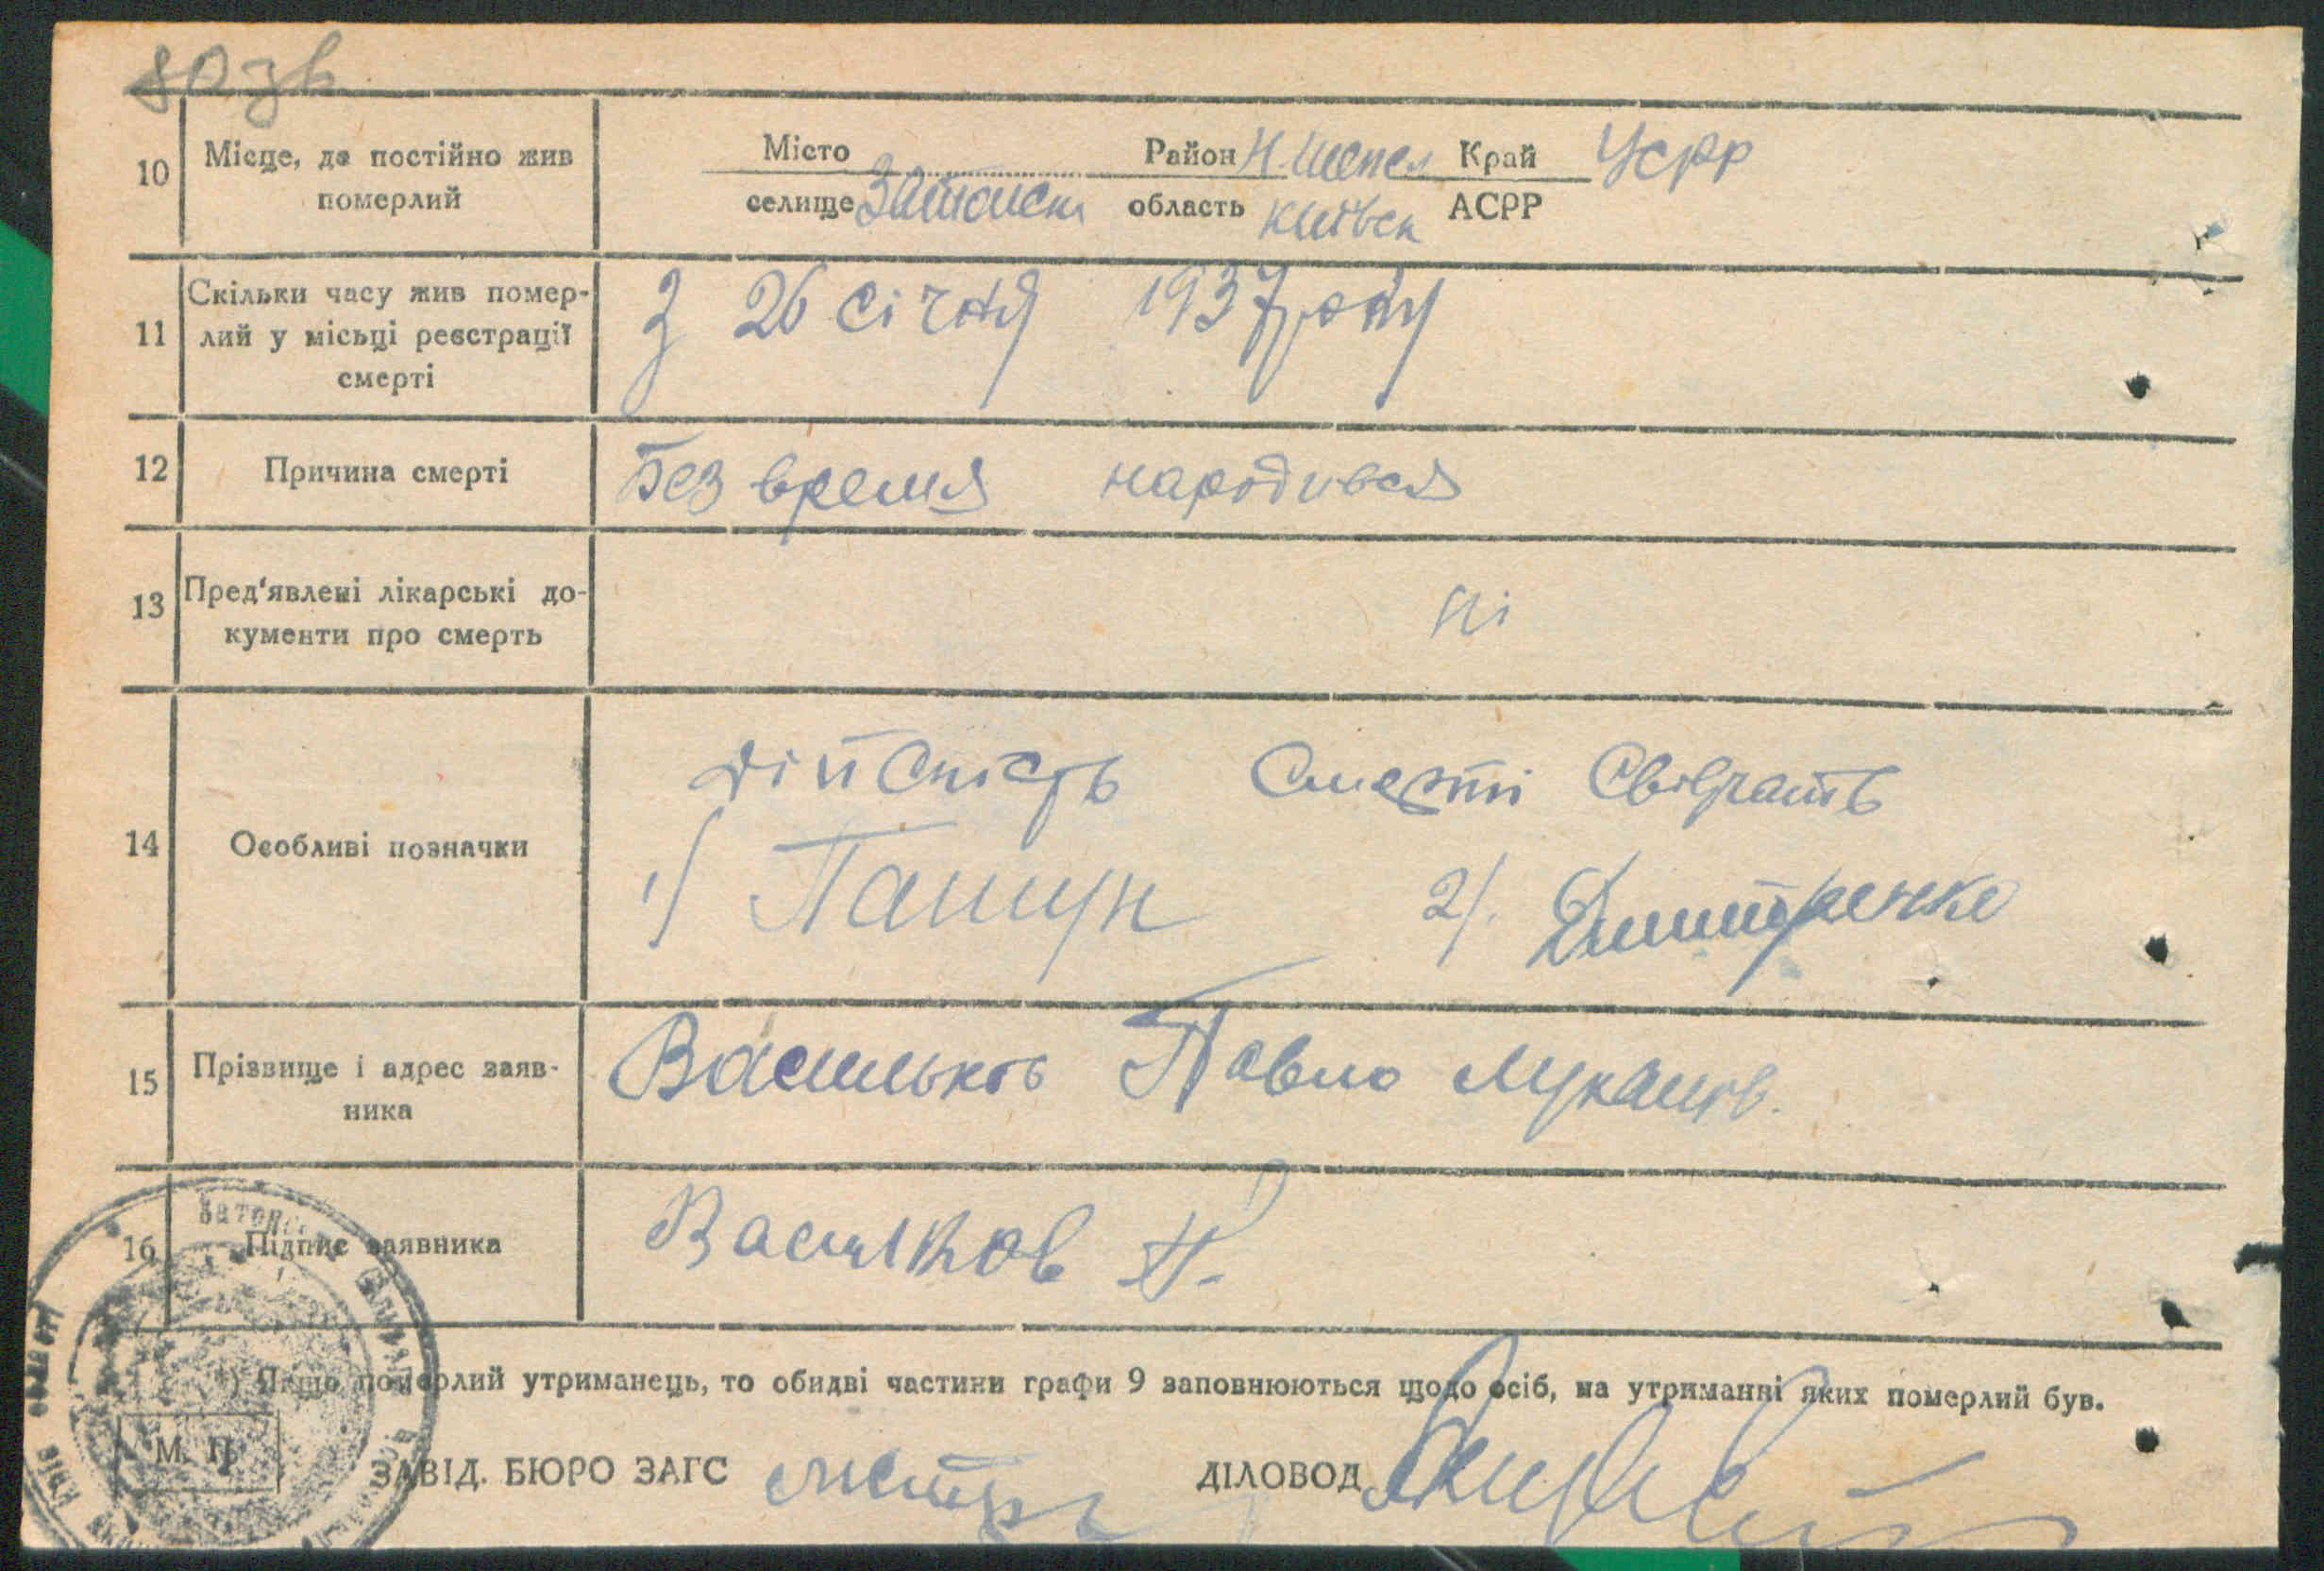 10 Місце, де постійно жив Місто Район Н. Шепел Край УСРР
померлий селище Затонськ область Київськ АСРР
Скільки часу жив помер-
11 лий у місьці реєстрації з 26 січня 1937 року
смерті
12 Причина смерті Без время народився
13 Пред'явлені лікарські до- ні
кументи про смерть
дійсність смерті свідчать
14 Особливі позначки 1) Пашун 2). Дмитренко
15 Прізвище і адрес заяв- Васильков Павло Лукашов.
ника
16 Підпис заявника Васильков П.
) Якщо померлий утриманець, то обидві частини графи 9 заповнюються щодо осіб, на утриманні яких померлий був.
М. П.
ЗАВІД. БЮРО ЗАГС ДІЛОВОД